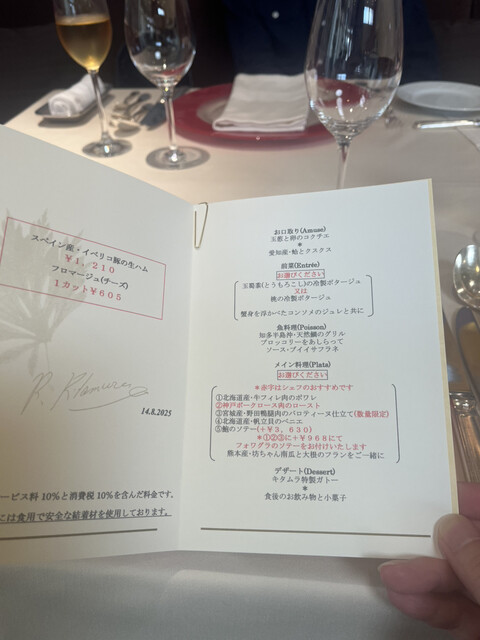 スペイン産・イベリコ豚の生ハム
￥1,210
フロマージュ(チーズ)
1カット￥605
14.8.2025
ービス料 10%と消費税 10%を含んだ料金です。
には食用で安全な結着材を使用しております。
お口取り(Amuse)
玉葱と卵のコクチエ
＊
愛知産・蛤とクスクス
前菜(Entrée)
お選びください
玉蜀黍(とうもろこし)の冷製ポタージュ
又は
桃の冷製ポタージュ
蟹身を浮かべたコンソメのジュレと共に
魚料理(Poisson)
知多半島沖・天然鱸のグリル
ブロッコリーをあしらって
ソース・ブイイサフラネ
メイン料理(Plats)
お選びください
＊赤字はシェフのおすすめです
①北海道産・牛フィレ肉のポワレ
②神戸ポークロース肉のロースト
③宮城産・野田鴨腿肉のバロティーヌ仕立て(数量限定)
④北海道産・帆立貝のベニエ
⑤鮑のソテー(＋￥3,630)
＊①②③に＋￥968にて
フォワグラのソテーをお付けいたします
熊本産・坊ちゃん南瓜と大根のフランをご一緒に
デザート(Dessert)
キタムラ特製ガトー
＊
食後のお飲み物と小菓子